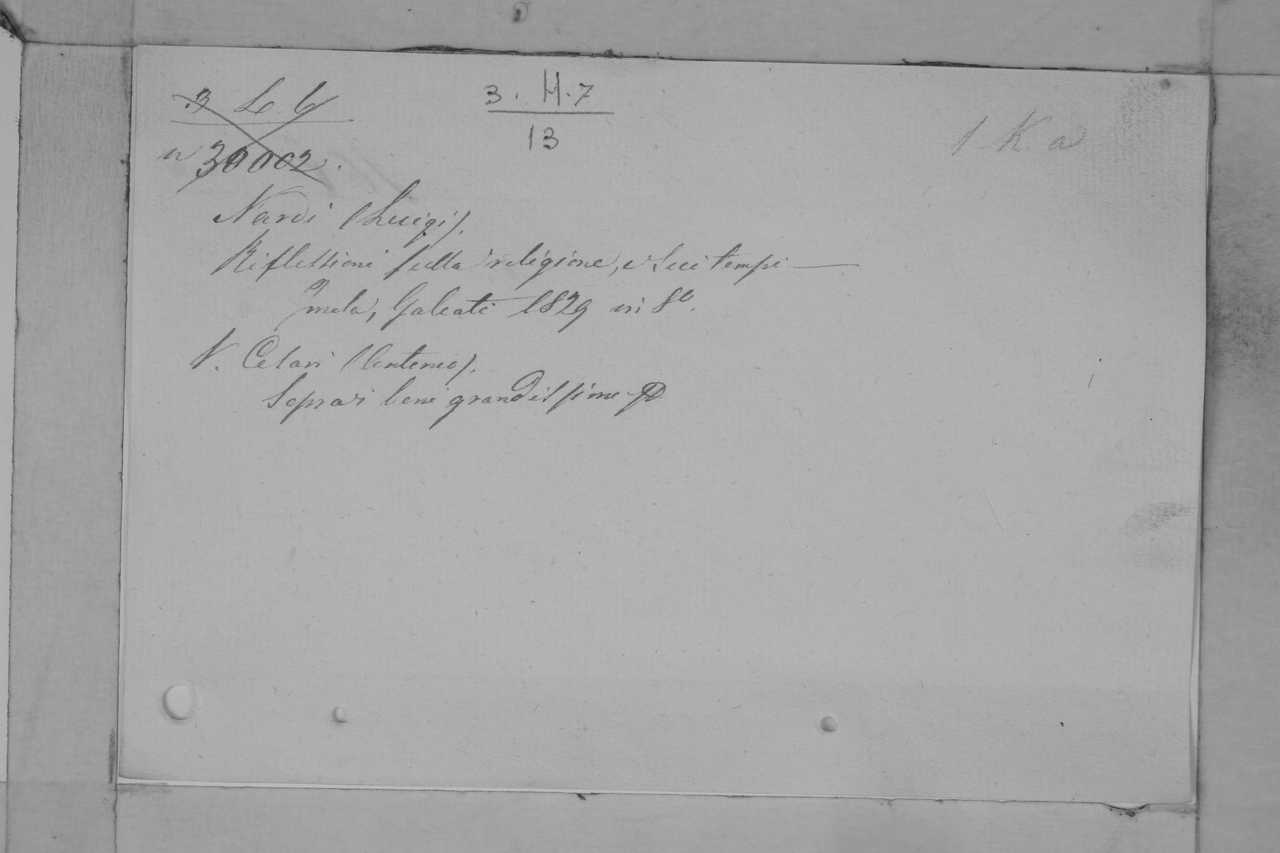 3 L b
n 30002.
3. H. 7
13
1 K a
Nardi (Luigi).
Riflessioni sulla religione, e suoi tempi —
Imola, Galeati 1829 in 8º.
V. Cesari (Antonio).
Sopra i beni grandissimi